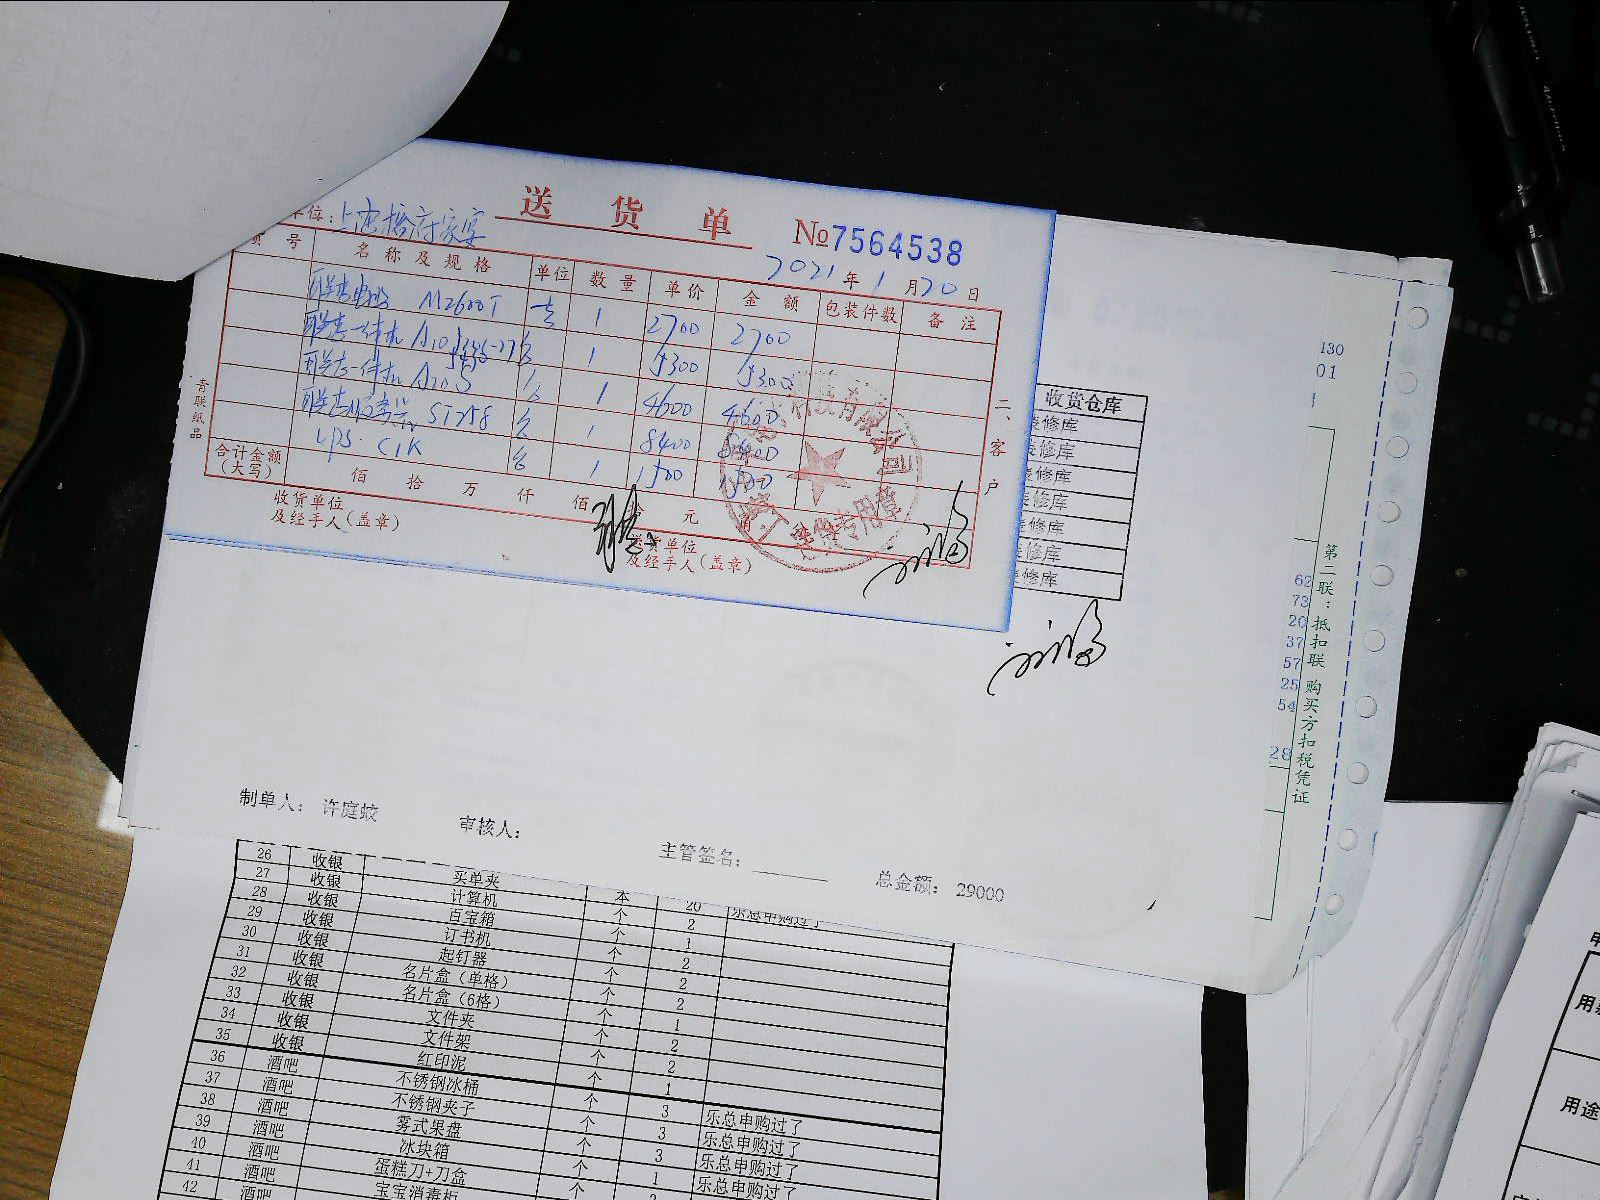 送货单 №7564538
单位:上海 府家宴
2021年1月20日
号 名称及规格 单位 数量 单价 金额 包装件数 备注
联想电脑 M2600T 台 1 2700 2700
联想一体机 A10 台 1 5300 5300
联想一体机 A20S 台 1 4600 4600
联想服务器 ST258 台 1 8400 8400
UPS C1K 台 1 1500 1500
合计金额
(大写) 佰 拾 万 仟 佰 拾 元 角
收货单位
及经手人(盖章)
送货单位
及经手人(盖章)
青联纸品
二、客户
收货仓库
装修库
装修库
装修库
装修库
装修库
装修库
装修库
130
01
62
73
20
37
57
25
54
28
第二联:抵扣联 购买方扣税凭证
制单人: 许庭蛟 审核人: 主管签名: 总金额: 29000
26 收银 买单夹 本 20 乐总申购过了
27 收银 计算机 个 2
28 收银 百宝箱 个 1
29 收银 订书机 个 2
30 收银 起钉器 个 2
31 收银 名片盒(单格) 个 2
32 收银 名片盒(6格) 个 1
33 收银 文件夹 个 2
34 收银 文件架 个 2
35 收银 红印泥 个 1
36 酒吧 不锈钢冰桶 个 3 乐总申购过了
37 酒吧 不锈钢夹子 个 3 乐总申购过了
38 酒吧 雾式果盘 个 3 乐总申购过了
39 酒吧 冰块箱 个 1 乐总申购过了
40 酒吧 蛋糕刀+刀盒 个
41 酒吧 宝宝消毒柜
42 酒吧
用途